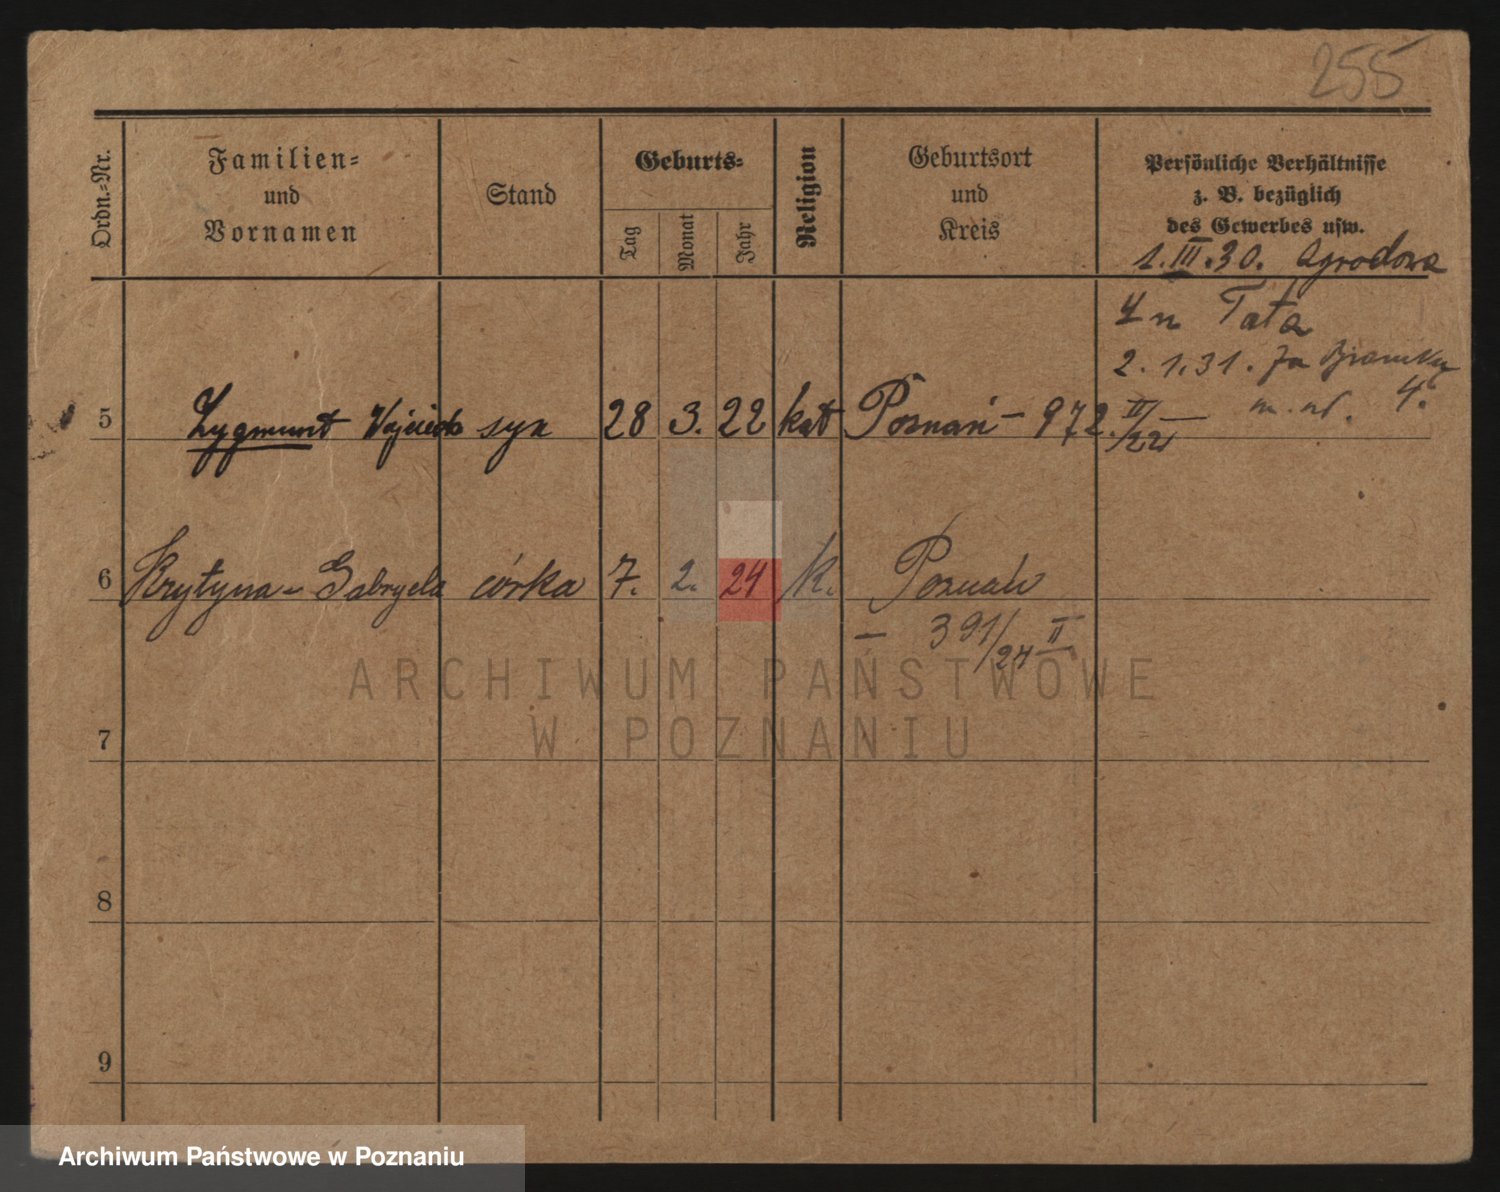 255
Ordn.-Nr.
Familien-
und
Vornamen
Stand
Geburts-
Tag
Monat
Jahr
Religion
Geburtsort
und
Kreis
Persönliche Verhältnisse
z. B. bezüglich
des Gewerbes usw.
1. III. 30. Ogrodowa
Tata
2. 1. 31. Za
5 Zygmunt Wojciech syn 28 3. 22 kat Poznań – 972. III/22 –
4.
6 Krytyna - Gabryela córka 7. 2. 24 k. Poznań
– 391/24 II
ARCHIWUM PAŃSTWOWE
W POZNANIU
7
8
9
Archiwum Państwowe w Poznaniu